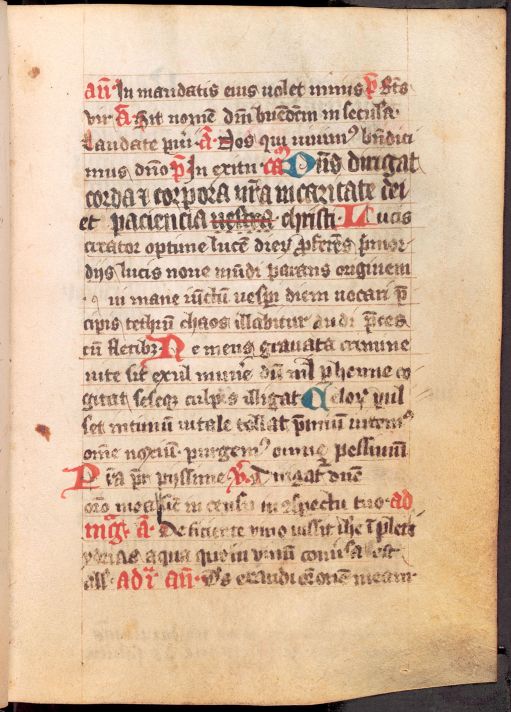 an̄ In mandatis eius uolet nimis p̄ Bt̄s
vir A̅ Sit nomē dn̄i bn̄dc̄m in secula·
Laudate pu̅i A̅ Nos qui viuim⁹ bn̄dici
mus dn̄o p̄ In exitu ca̅ Dn̄s dirigat
corda ⁊ corpora nr̄a in caritate dei
et paciencia uestra christi Lucis
creator optime lucē diery p̄ferēs p̄mor
dijs lucis noue mūdi parans originem
ui mane iūctū uesp̄i diem uocari p̄
cipis tetrū chaos illabitur audi p̄ces
cū fletibꝫ Ne mens grauata crimine
uite sit exul mun̄e dū nil p̄henne co
gitat seseqꝫ culpis illigat Celoꝝ pul
set intimū uitale tollat p̄miū uitem⁹
om̄e noxiū· purgem⁹ om̄e pessimū
P̄sta p̄r pyssime V̄ Dirigat dn̄e
or̄o mea sic̄ incensū in ɔspectu tuo· ad
mag̅· A̅· Deficiente vino iussit ih̄c īpleri
ydrias aqua que in vinū cōuersa est
all̄· ad p̄· an̄· Ds̄ exaudi or̄onē meam·